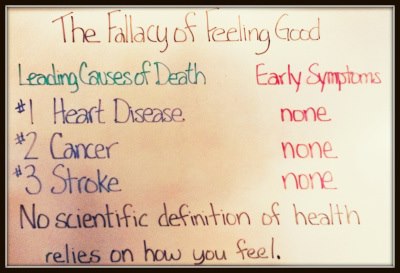 The Fallacy of Feeling Good
Leading Causes of Death Early Symptoms
#1 Heart Disease none
#2 Cancer none
#3 Stroke none
No scientific definition of health
relies on how you feel.